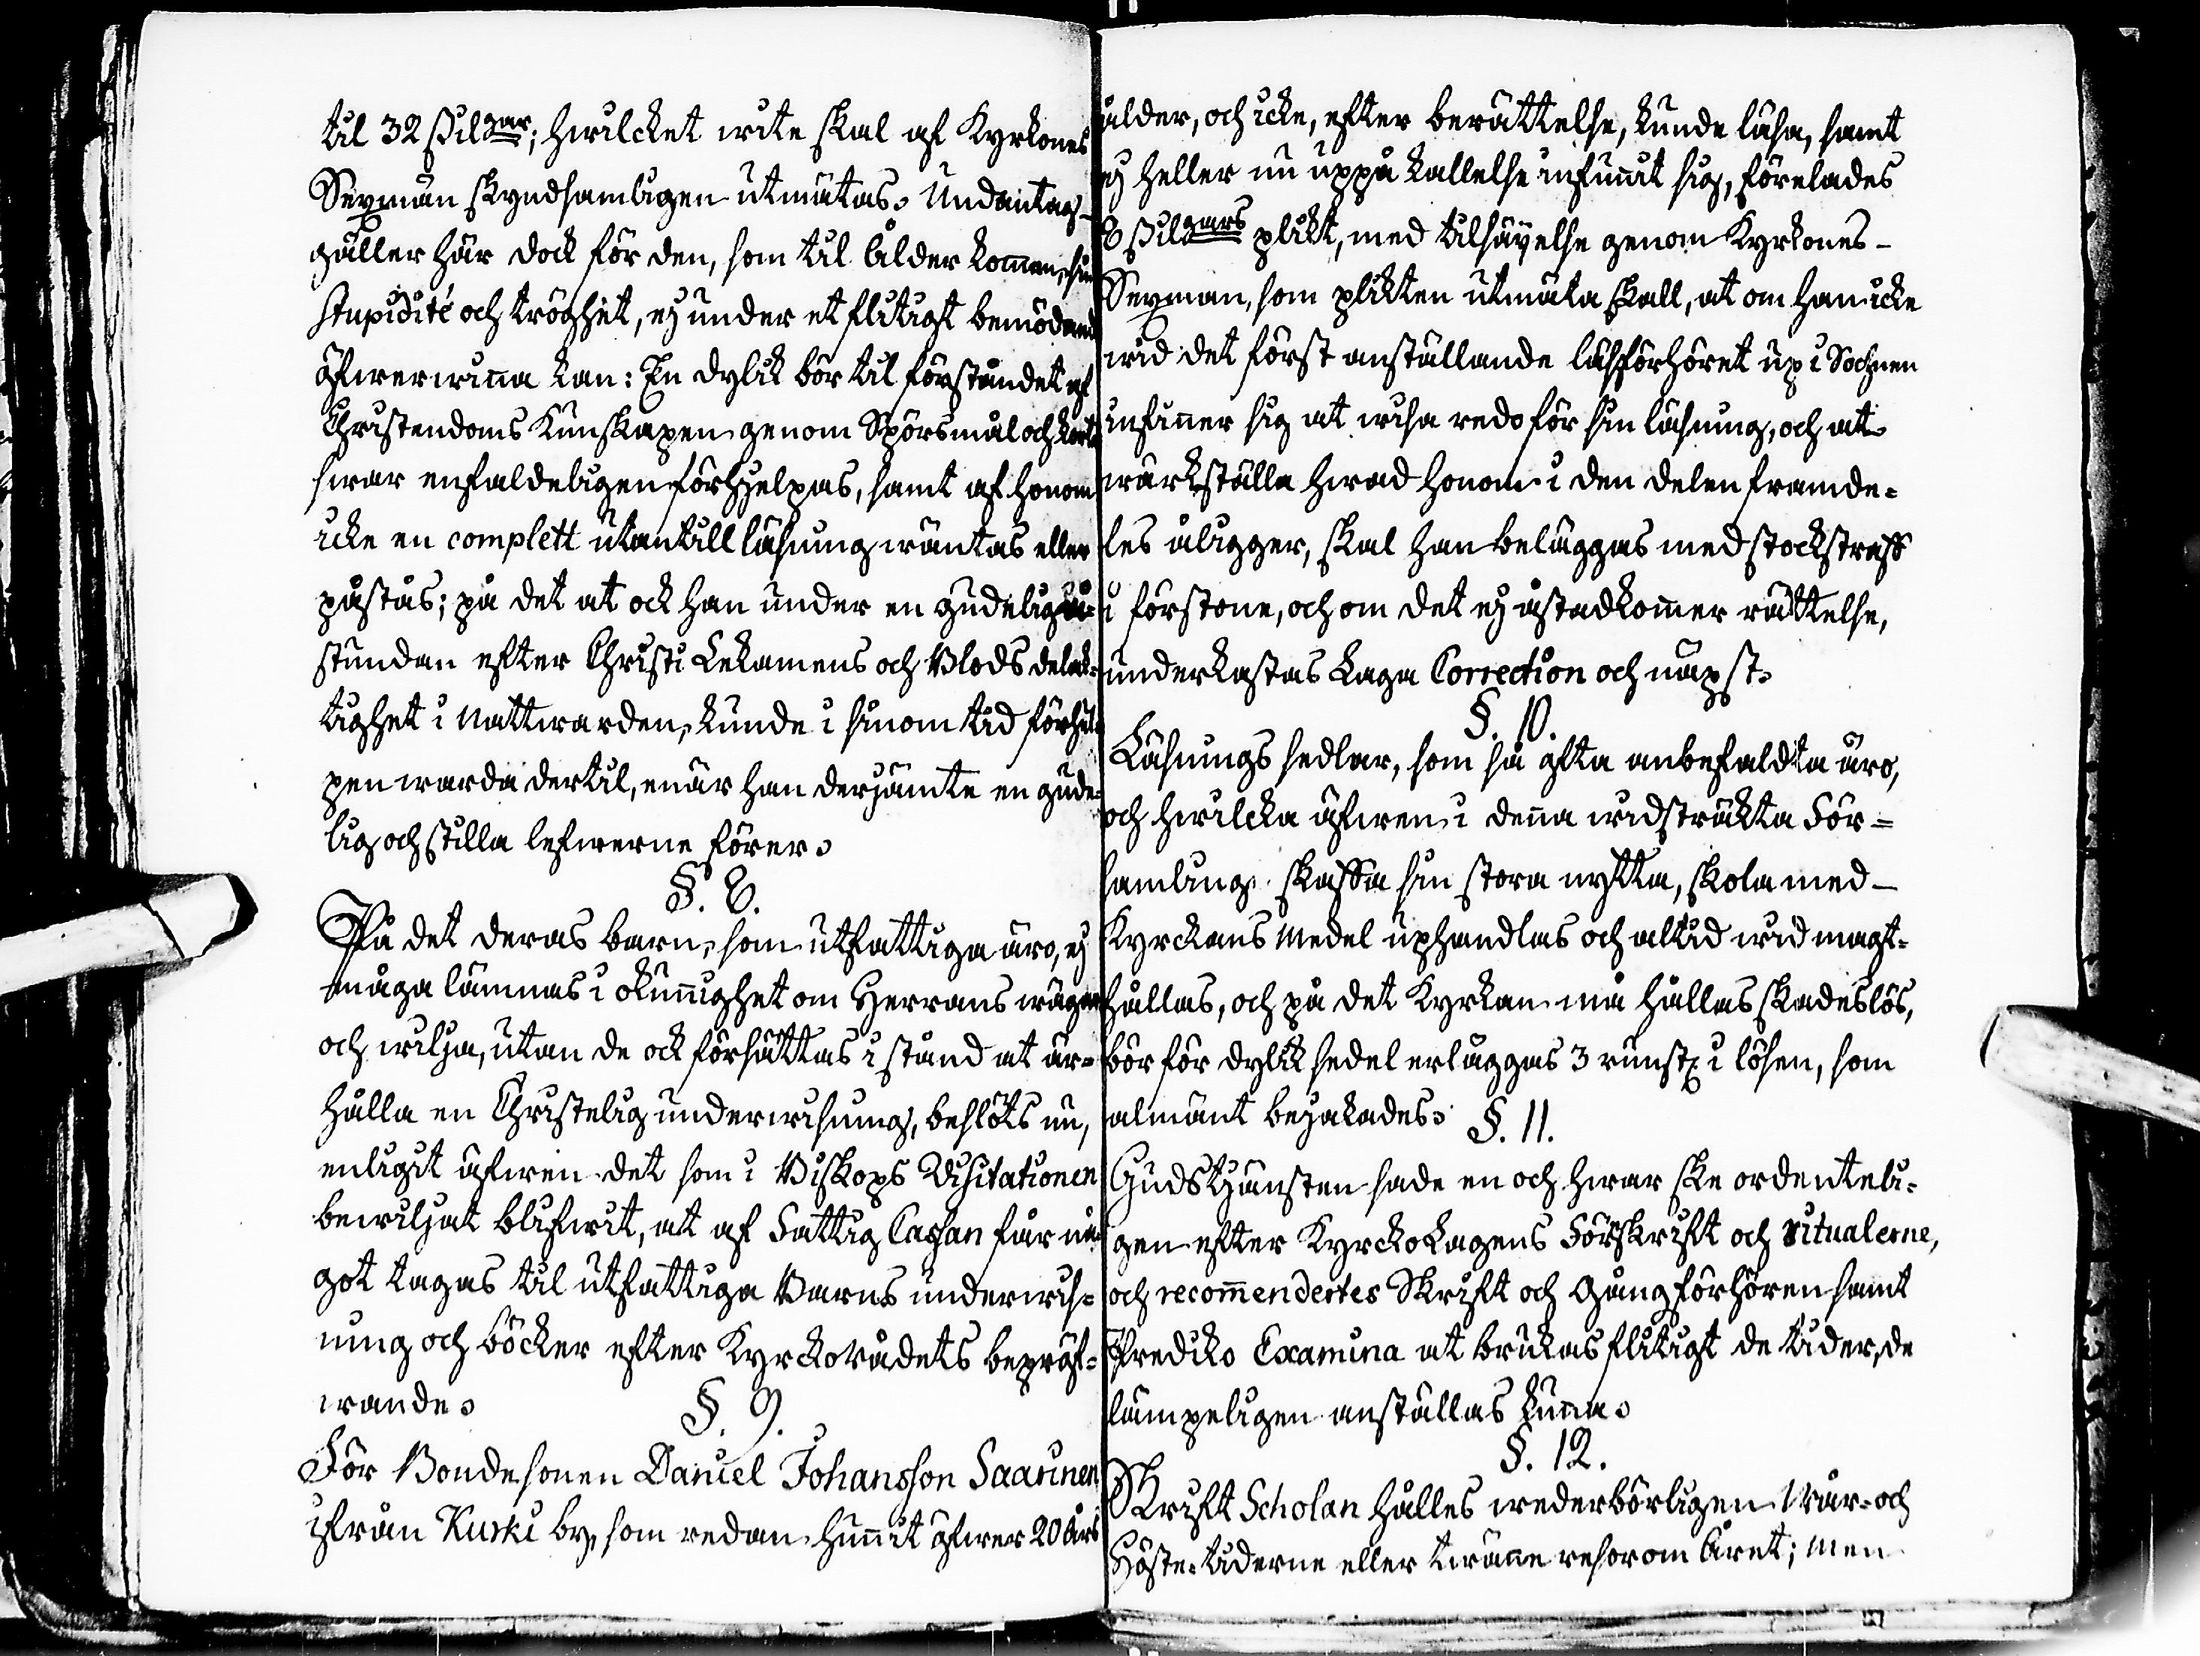 til 32 ßilgar; hwilcket wite skal af Kyrkones
Sexmän skyndsamligen utmätas. Undantag
gäller här dock för den, som til ålder kommen, sin
stupidité och tröghet, ej under et flitigt bemödand
öfwerwinna kan: En dylik bör til förståndet af
Christendoms Kunskapen genom Spörsmål och korta
swar enfaldeligen förhjelpas, samt af honom
icke en complett utantill läsning wäntas eller
påstås; på det at ock han under en gudelig å-
stundan efter Christi Lekamens och Blods delak-
tighet i Nattwarden, kunde i sinom tid förhul-
pen warda dertil, enär han derjämte en gude-
lig och stilla lefwerne förer.
§. 8.
På det deras barn, som utfattiga äro, ej
måga lämnas i okunnighet om Herrans wägar
och wilja, utan de ock försättas i stånd at är-
hålla en Christelig underwisning, beslöts nu,
enligit äfwen det som i Biskops Visitationen
bewiljat blifwit, at af Fattig Cassan får nå-
got tagas til utfattiga Barns underwis-
ning och böcker efter Kyrckorådets bepröf-
wande.
§. 9.
För Bondesonen Daniel Johansson Saarinen
ifrån Kurki by, som redan hunnit öfwer 20 års
ålder, och icke, efter berättelse, kunde läsa, samt
ej heller nu uppå kallelse infunnit sig, förelades
8 ßilgars plikt, med tilsäyelse genom Kyrkones
Sexman, som plikten utmäta skall, at om han icke
wid det först anställande läsförhöret up i Sochnen
infinner sig at wisa redo för sin läsning, och at
wärckställa hwad honom i den delen framde-
les åligger, skal han beläggas med stockstraff
i förstone, och om det ej åstadkommer rättelse,
underkastas Laga Correction och näpst.
§. 10.
Läsnings sedlar, som så ofta anbefaldta äro,
och hwilcka äfwen i denna widsträkta För-
samling skaffa sin stora nytta, skola med
Kyrckans Medel uphandlas och altid wid magt-
hållas, och på det Kyrkan må hållas skadeslös,
bör för dylik sedel erläggas 3 runst: i lösen, som
almänt bejakades.
§. 11.
Gudstjänsten sade en och hwar ske ordenteli-
gen efter Kyrcko Lagens Förskrift och ritualerne,
och recommendertes Skrift och Gångförhören samt
Prediko Examina at brukas flitigt de tider, de
lämpeligen anställas kunna.
§. 12.
Skrift Scholan hålles wederbörligen Wår- och
Höste-tiderne eller twänne resor om Året; men